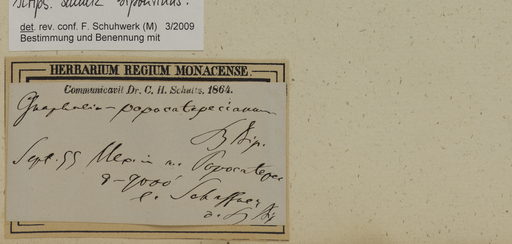 scrips. Schultz Bipontinus.
det. rev. conf. F. Schuhwerk (M) 3/2009
Bestimmung und Benennung mit
HERBARIUM REGIUM MONACENSE.
Communicavit Dr. C. H. Schultz. 1864.
Gnaphalium popocatepecianum
Bip.
Sept. 55 Mexico v. Popocatepec
8-9000'
l. Schaffner